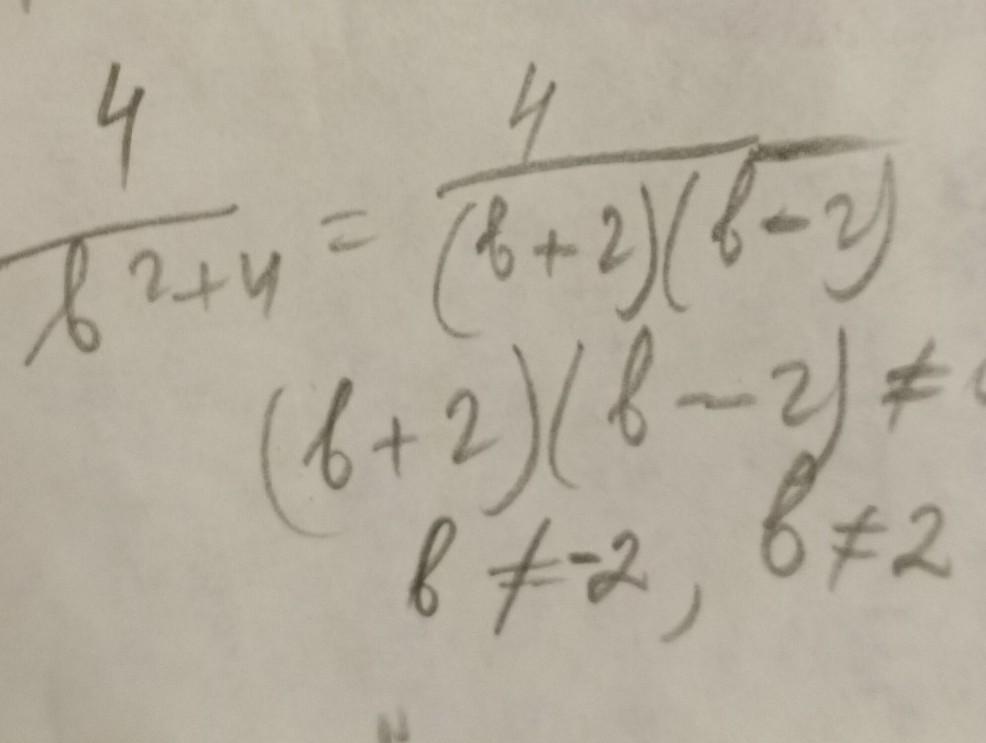 4/(b²+4) = 4/((b+2)(b-2))
(b+2)(b-2) ≠
b ≠ -2, b ≠ 2